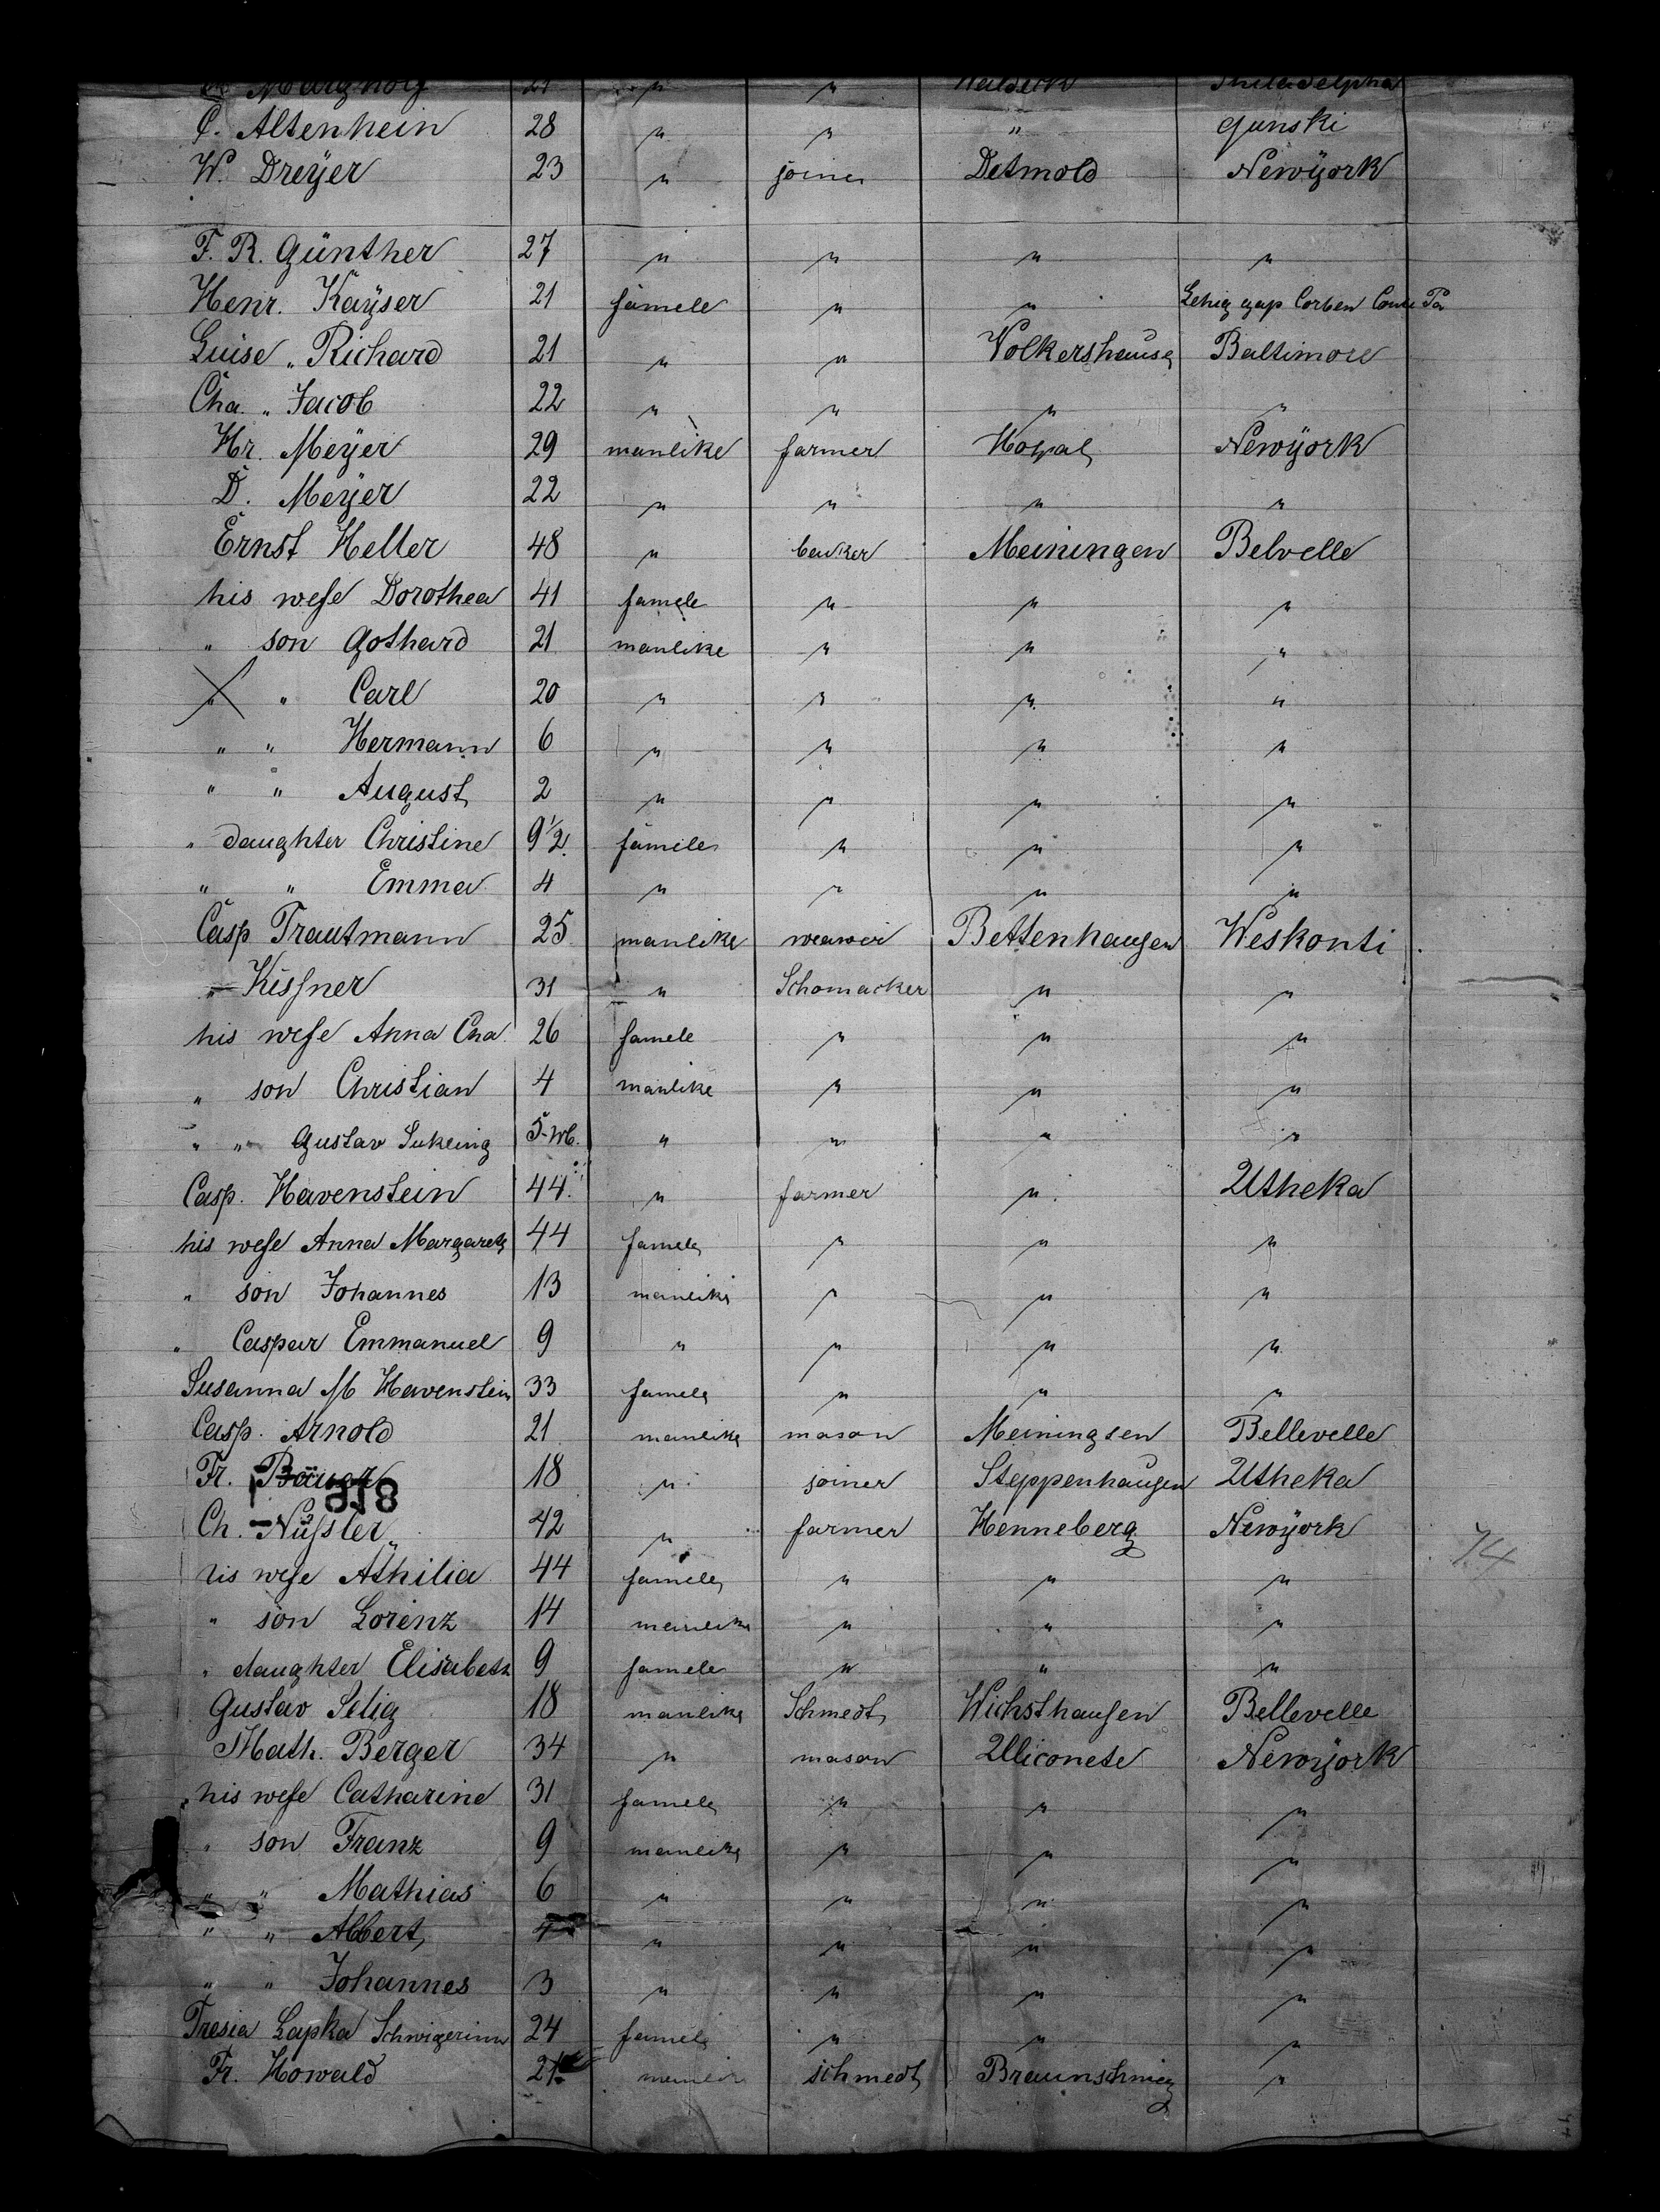 Margholf 21 " " Waldeck Philadelpha
C. Altenhein 28 " " " Gunski
W. Dreÿer 23 " joiner Detmold Newÿork
F. R. Günther 27 " " " "
Henr. Kaÿser 21 famele " " Lehig gap Corben Coute Pa
Luise " Richard 21 " " Volkershause Baltimore
Cha. " Jacob 22 " " " "
Hr. Meÿer 29 manlike farmer Newÿork
D. Meÿer 22 " " " "
Ernst Heller 48 " Meiningen Belvelle
his wefe Dorothea 41 famele " " "
" son Gothard 21 manlike " " "
" " Carl 20 " " " "
" " Hermann 6 " " " "
" " August 2 " " " "
" daughter Christine 9 1/2 famele " " "
" " Emma 4 " " " "
Casp Trautmann 25 manlike weawer Bettenhausen Weskonti
" Kissner 31 " Schomacker " "
his wefe Anna Cha. 26 famele " " "
" son Christian 4 manlike " " "
" " Gustav 5 " " " "
Casp. Havenstein 44 " farmer " Utheka
his wefe Anna Margareta 44 famele " " "
" son Johannes 13 manlike " " "
" Caspar Emmanuel 9 " " " "
Susanna M Havenstein 33 famele " " "
Casp. Arnold 21 manlike mason Meiningsen Bellevelle
Fr. Bauer 18 " joiner Steppenhausen Utheka
918
Ch. Nüssler 42 " farmer Henneberg Newÿork
74
his wefe Athilia 44 famele " " "
" son Lorenz 14 manlike " " "
" daughter Elisabeth 9 famele " " "
Gustav Selig 18 manlike Schmedt Wichsthausen Bellevelle
Math. Berger 34 " mason Newÿork
his wefe Catharine 31 famele " " "
" son Franz 9 manlike " " "
" " Mathias 6 " " " "
" " Albert 4 " " " "
" " Johannes 3 " " " "
Tresia Lapka Schwigerinn 24 famele " " "
Fr. Howald 21 manlike schmedt Braunschwieg "